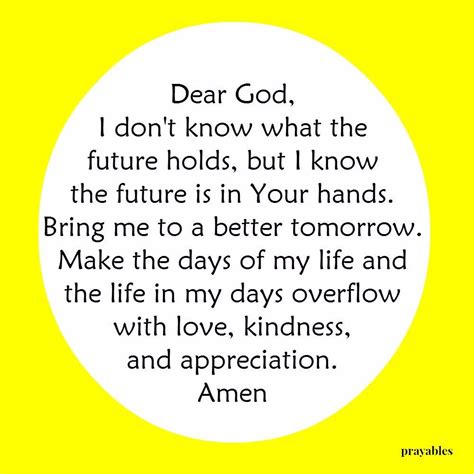 Dear God,
I don't know what the
future holds, but I know
the future is in Your hands.
Bring me to a better tomorrow.
Make the days of my life and
the life in my days overflow
with love, kindness,
and appreciation.
Amen
prayables